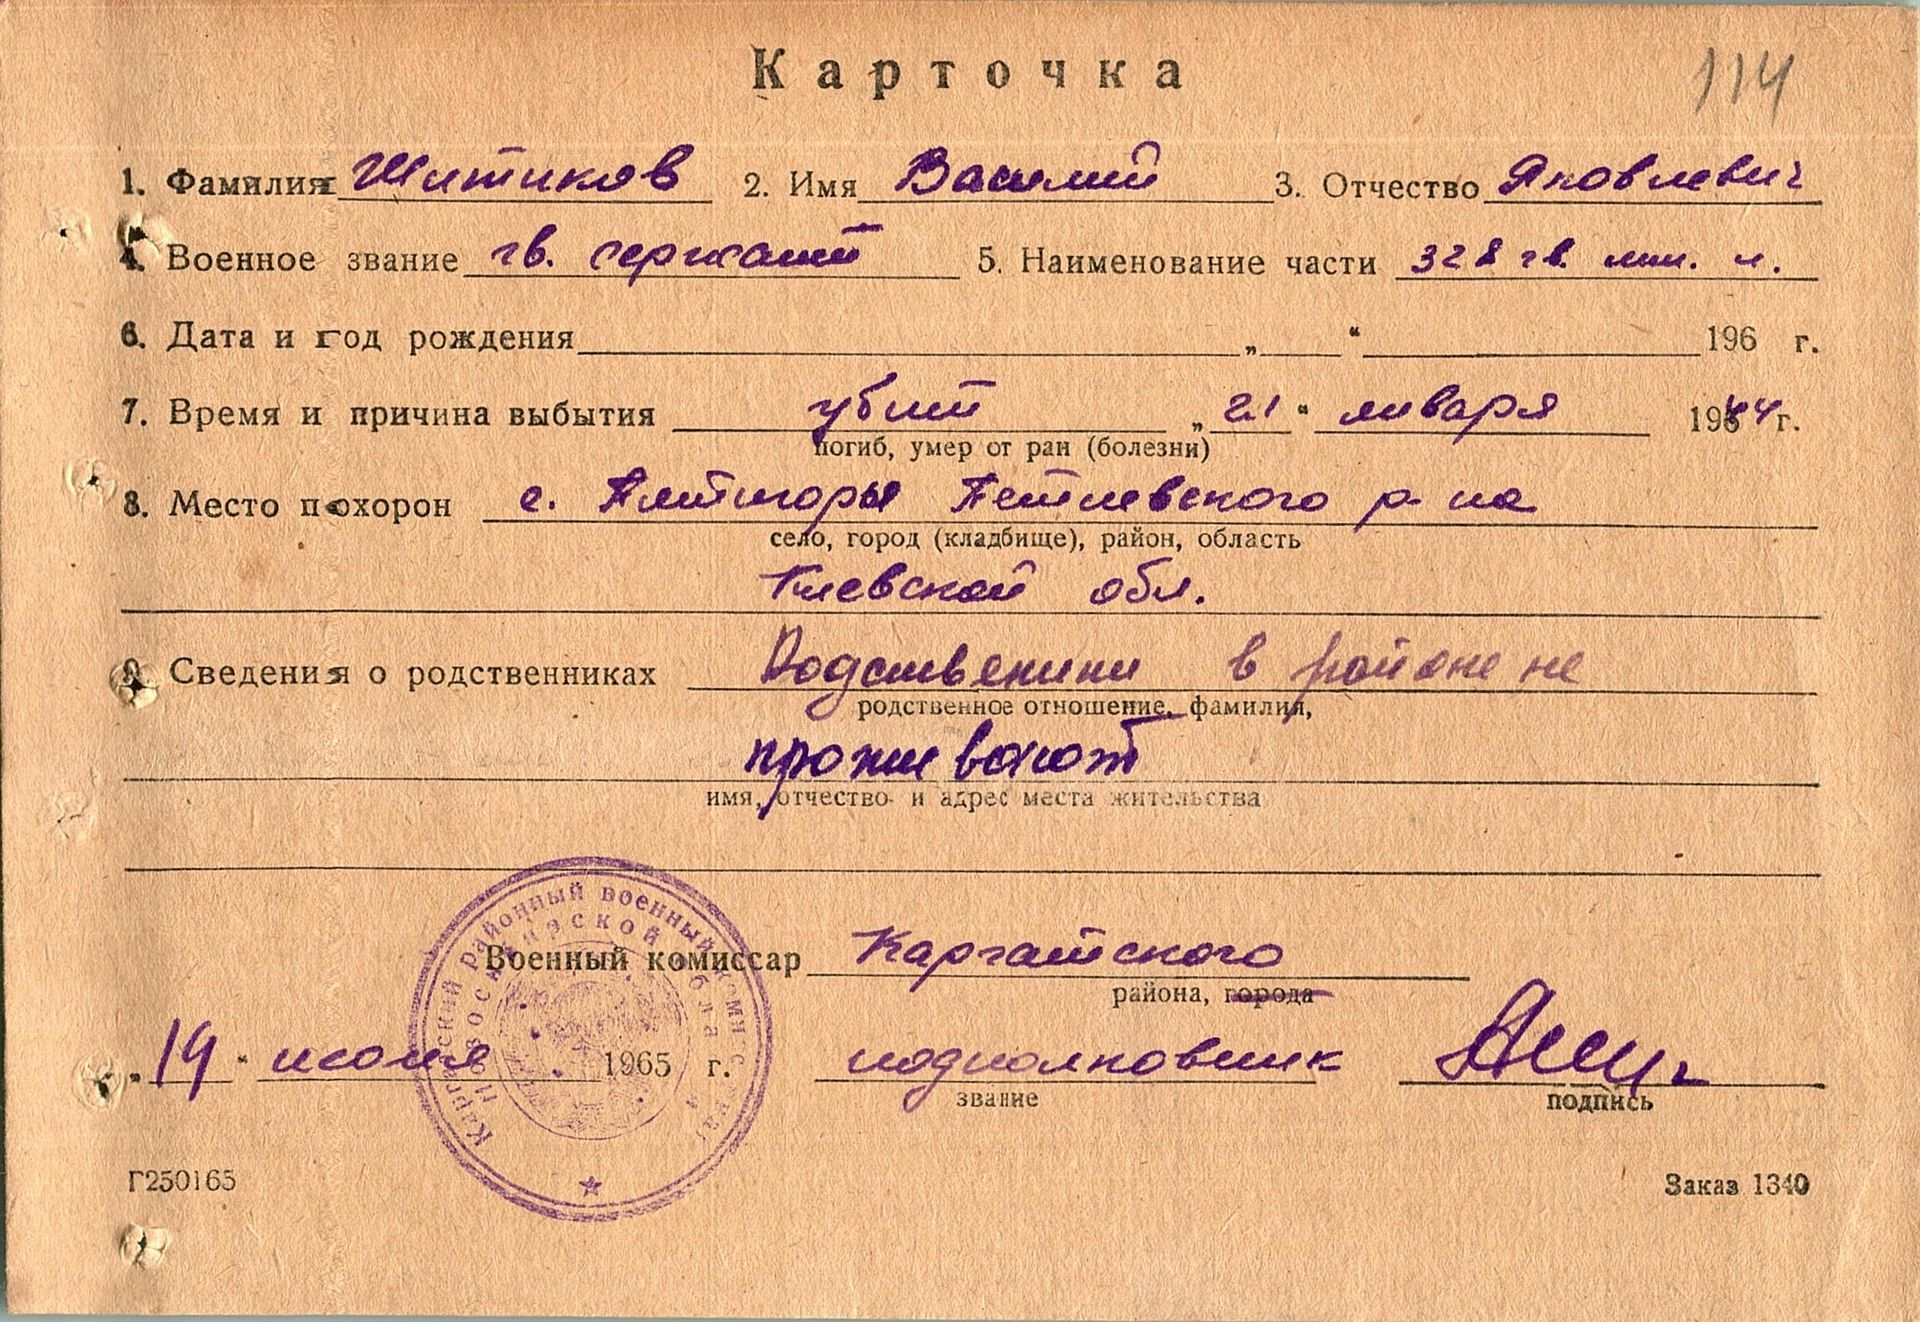 Карточка
114
1. Фамилия Шитиков 2. Имя Василий 3. Отчество Яковлевич
4. Военное звание гв. сержант 5. Наименование части 328 гв. мин. п.
6. Дата и год рождения „ “ 196 г.
7. Время и причина выбытия убит „21“ января 1944г.
погиб, умер от ран (болезни)
8. Место похорон с. Пятигоры Тетиевского р-на
село, город (кладбище), район, область
Киевской обл.
9. Сведения о родственниках Родственики в районе не
родственное отношение, фамилия,
проживают
имя, отчество и адрес места жительства
Каргатский районный военный комиссариат
Новосибирской области
Военный комиссар Каргатского
района, города
„14“ июня 1965 г. подполковник
звание подпись
Г250165 Заказ 1340